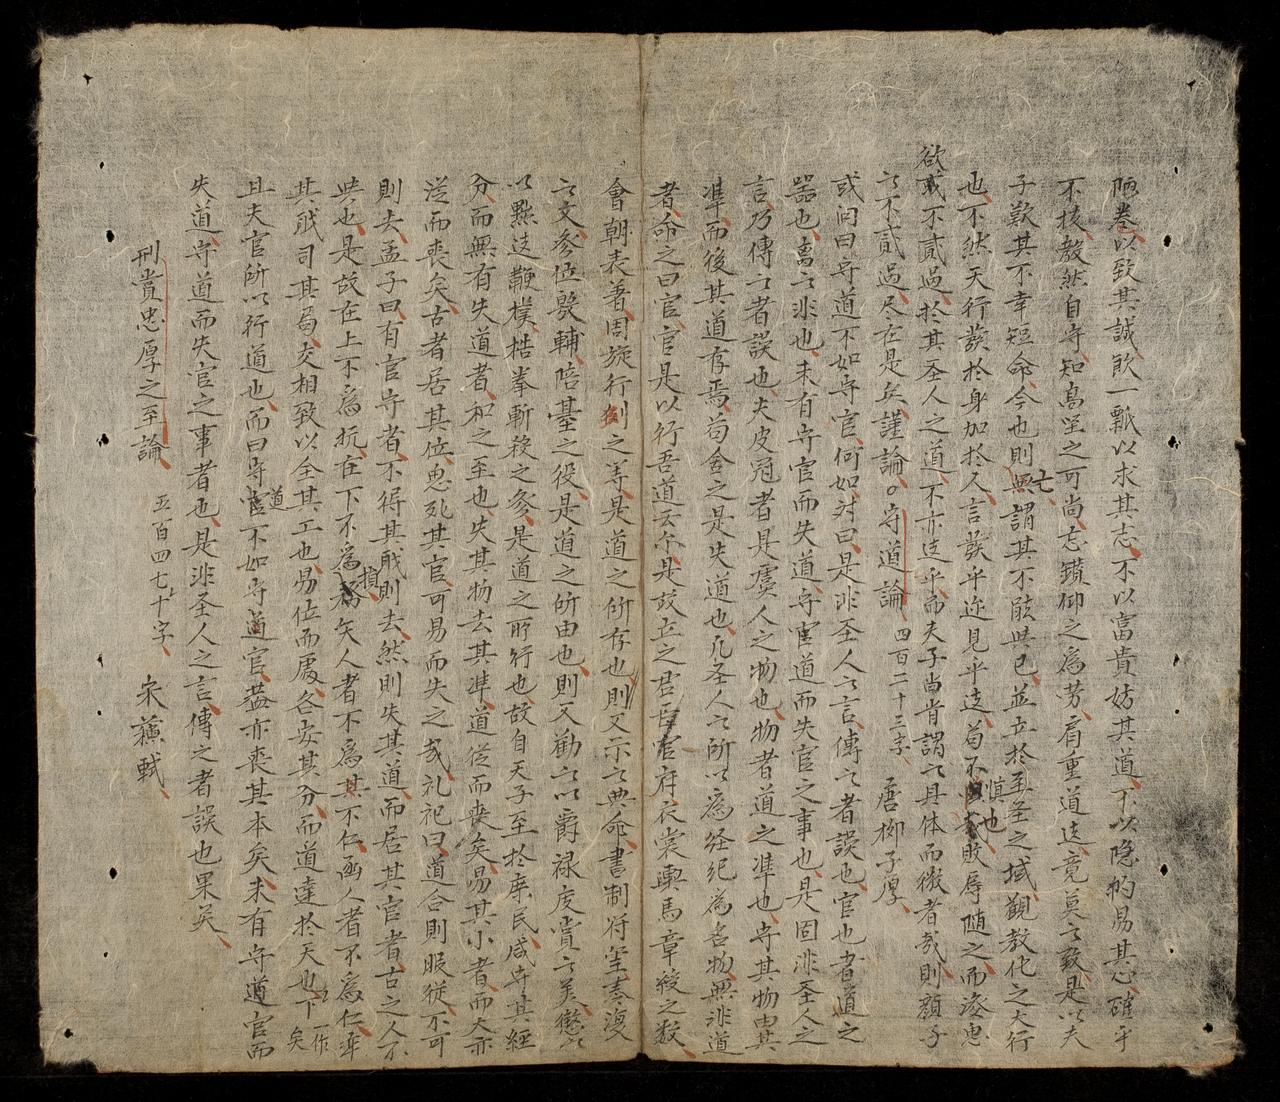 陋巷以致其誠飲一瓢以求其志不以富貴妨其道不以隠約易其心確乎
不拔敎然自守知高堅之可尚忘鑚仰之為勞肩重道逺竟莫之致是以夫
子歎其不幸短命今也則無亡謂其不能與已並立於至圣之域觀教化之大行
也不然夫行發於身加於人言發乎迩見乎逺苟不慎也敗辱随之而後思
欲不貳過於其圣人之道不亦逺乎而夫子尚肯謂之具体而微者哉則顔子
之不貳過尽在是矣謹論○守道論 四百二十三字 唐柳子厚
或问曰守道不如守官何如対曰是非圣人之言傳之者誤也官也者道之
器也离之非也未有守官而失道守道而失官之事也是固非圣人之
言乃傳之者誤也夫皮冠者是虞人之物也物者道之凖也守其物由其
凖而後其道存焉苟舍之是失道也凡圣人之所以為経紀為名物無非道
者命之曰官官是以行吾道云尔是故立之君長官府衣裳輿馬章綬之数
會朝表著周旋行列之等是道之所存也則又示之典命書制符璽奏復
之文参伍殷輔陪䑓之役是道之所由也則又勸之以爵禄庆賞之美懲之
以黜逺鞭撲梏拲斬殺之参是道之所行也故自天子至於庶民咸守其經
分而無有失道者和之至也失其物去其凖道從而喪矣易其小者而大亦
從而喪矣古者居其位思死其官可易而失之哉礼祀曰道合則服從不可
則去孟子曰有官守者不得其戠則去然則失其道而居其官者古之人不
與也是故在上不為抗在下不為損矢人者不為其不仁函人者不為仁率
其戠司其局交相致以全其工也易位而處各安其分而道達於天下矣 一作也
且夫官所以行道也而曰守道不如守官盖亦喪其本矣未有守道官而
失道守道而失官之事者也是非圣人之言傳之者誤也果矣
刑賞忠厚之至論 五百四七十字 宋蘓軾